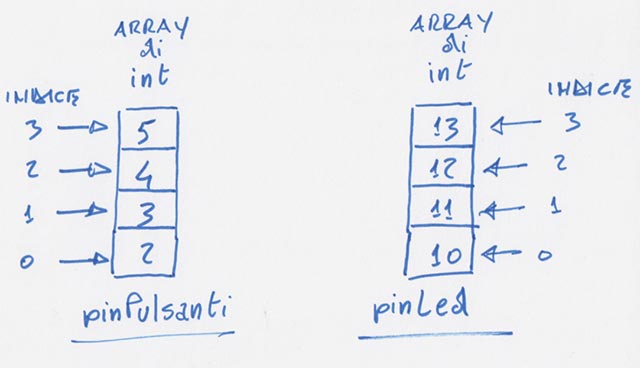 ARRAY
di
int
INDICE
3 → 5
2 → 4
1 → 3
0 → 2
pinPulsanti
ARRAY
di
int
INDICE
13 ← 3
12 ← 2
11 ← 1
10 ← 0
pinLed